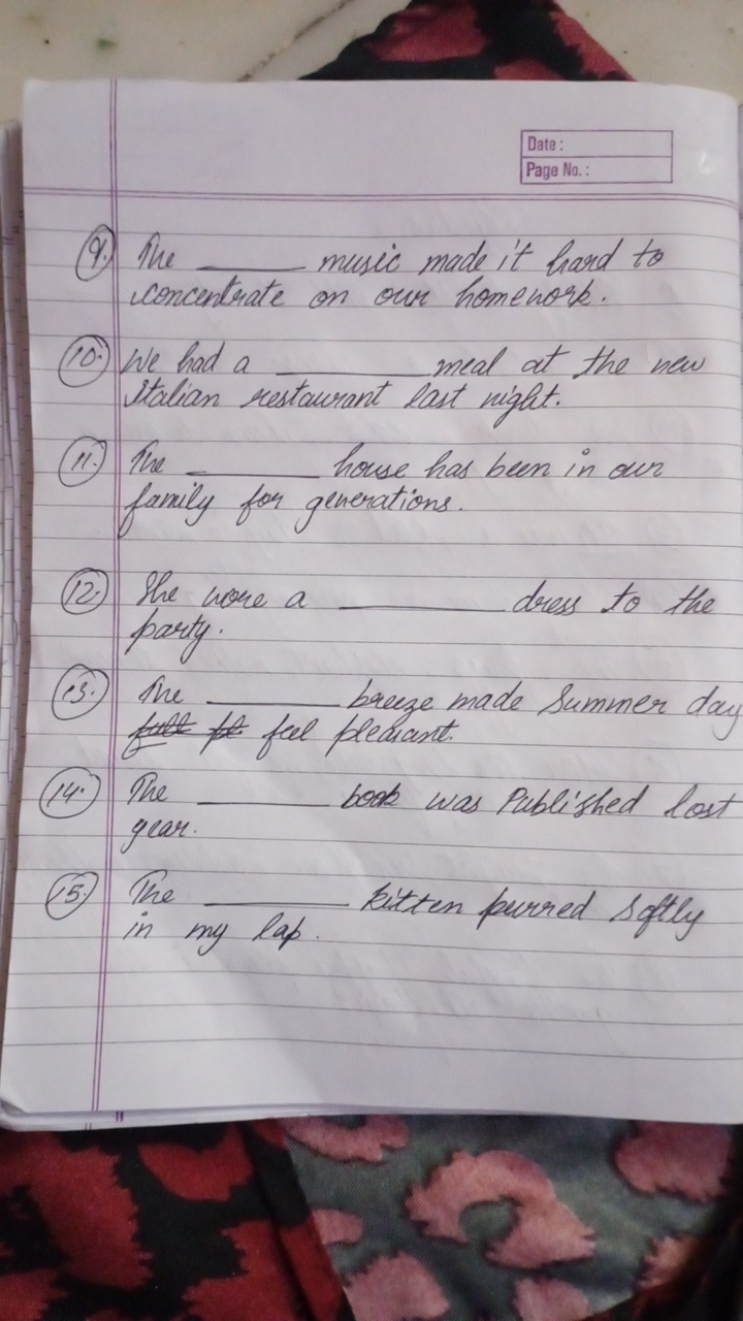 Date :
Page No. :
9. The ______ music made it hard to
concentrate on our homework.
10. We had a ______ meal at the new
Italian restaurant last night.
11. The ______ house has been in our
family for generations.
12. She wore a ______ dress to the
party.
13. The ______ breeze made Summer day
feel pleasant.
14. The ______ book was Published last
year.
15. The ______ kitten purred softly
in my lap.